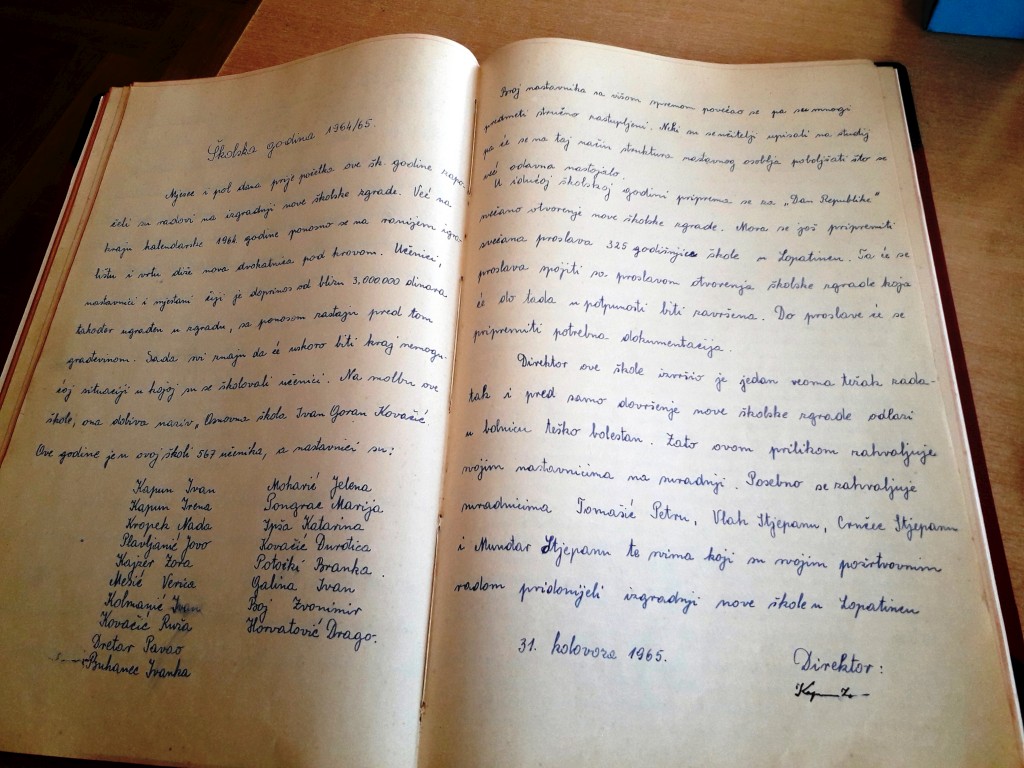 Školska godina 1964/65.
Mjesec i pol dana prije početka ove šk. godine zapo-
čeli su radovi na izgradnji nove školske zgrade. Već na
kraju kalendarske 1964. godine ponosno se na ranijem igra-
lištu i vrtu diže nova dvokatnica pod krovom. Učenici,
nastavnici i mještani čiji je doprinos od blizu 3,000 000 dinara
također ugrađen u zgradu, sa ponosom zastaju pred tom
građevinom. Sada svi znaju da će uskoro biti kraj nemogu-
ćoj situaciji u kojoj su se školovali učenici. Na molbu ove
škole, ona dobiva naziv, Osnovna škola Ivan Goran Kovačić.
Ove godine je u ovoj školi 567 učenika, a nastavnici su:
Kapun Ivan
Kapun Irena
Kropek Nada
Slavljanić Jovo
Kajzer Zora
Mesić Verica
Kolmanić Ivan
Kovačić Ruža
Dretar Pavao
Buhanec Ivanka
Moharić Jelena
Pongrac Marija
Ipša Katarina
Kovačić Đurđica
Potočki Branka.
Galina Ivan
Boj Zvonimir
Horvatović Drago.
Broj nastavnika sa višom spremom povećao se pa su mnogi
predmeti stručno zastupljeni. Neki su se učitelji upisali na studij
pa će se na taj način struktura nastavnog osoblja poboljšati što se
već odavna nastojalo.
U idućoj školskoj godini priprema se za „Dan Republike"
svečano otvorenje nove školske zgrade. Mora se još pripremiti
svečana proslava 325 godišnjice škole u Lopatincu. Ta će se
proslava spojiti sa proslavom otvorenja školske zgrade koja
će do tada u potpunosti biti završena. Do proslave će se
pripremiti potrebna dokumentacija.
Direktor ove škole izvršio je jedan veoma težak zada-
tak i pred samo dovršenje nove školske zgrade odlazi
u bolnicu teško bolestan. Zato ovom prilikom zahvaljuje
svojim nastavnicima na suradnji. Posebno se zahvaljuje
suradnicima Tomašić Petru, Vlah Stjepanu, Crnčec Stjepanu
i Munđar Stjepanu te svima koji su svojim požrtvovnim
radom pridonijeli izgradnji nove škole u Lopatincu
31. kolovoza 1965.
Direktor: